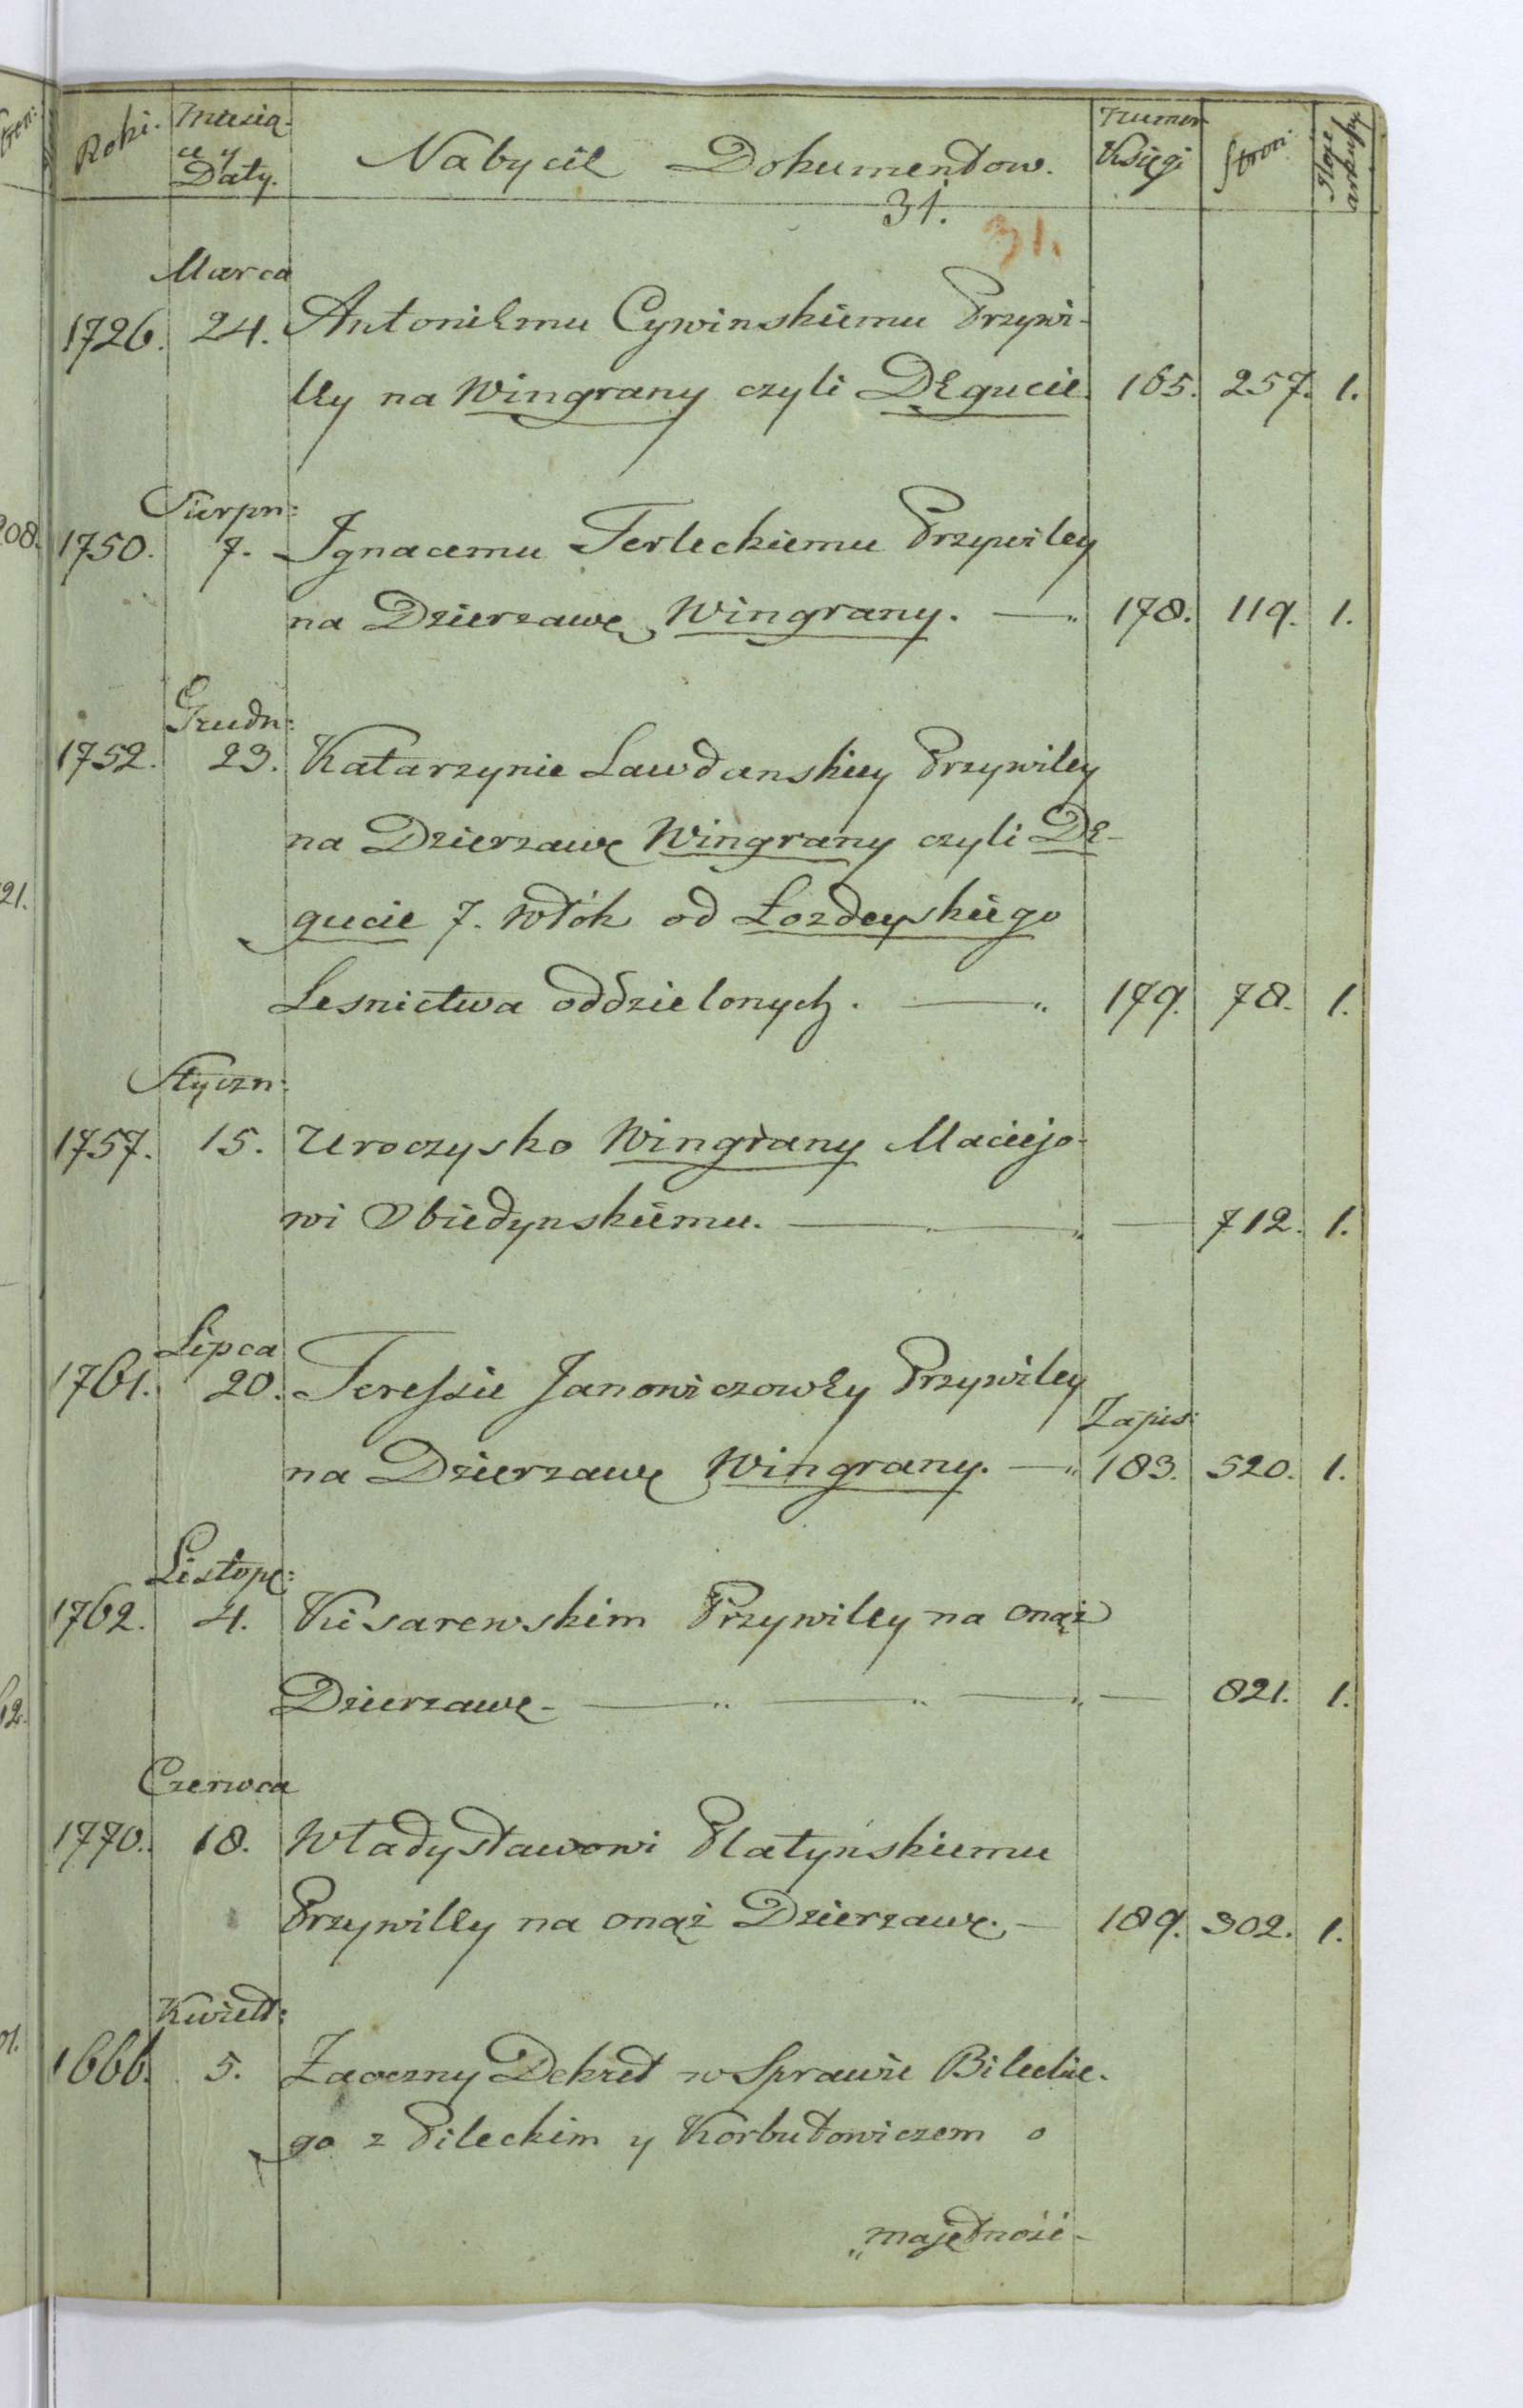 Roki. Miesią-
ce y
Daty.
Nabycie Dokumentow.
Numer
Księgi
Stron:
31.
31.
Marca
1726. 24. Antoniemu Cywinskiemu Przywi-
ley na Wingrany czyli Degucie. 165. 257. 1.
Sierpn:
1750. 7. Ignacemu Terleckiemu Przywiley
na Dzierzawę Wingrany. — 178. 119. 1.
Grudn:
1752. 23. Katarzynie Lawdanskiey Przywiley
na Dzierzawę Wingrany czyli De-
gucie 7. Włók od Łozdeyskiego
Lesnictwa oddzielonych. — 179. 78. 1.
Styczn:
1757. 15. Uroczysko Wingrany Maciejo-
wi Obiedynskiemu. — — 712. 1.
Lipca
1761. 20. Teressie Janowiczowey Przywiley
Zapis:
na Dzierzawę Wingrany. — 183. 520. 1.
Listop:
1762. 4. Kisarewskim Przywiley na onąż
Dzierzawę — — 821. 1.
Czerwca
1770. 18. Władysławowi Platyńskiemu
Przywiley na onąż Dzierzawę. — 189. 302. 1.
Kwiet:
1666. 5. Zaoczny Dekret w Sprawie Bileckie-
go z Pileckim y Korbutowiczem o
„majętność-
208.
21.